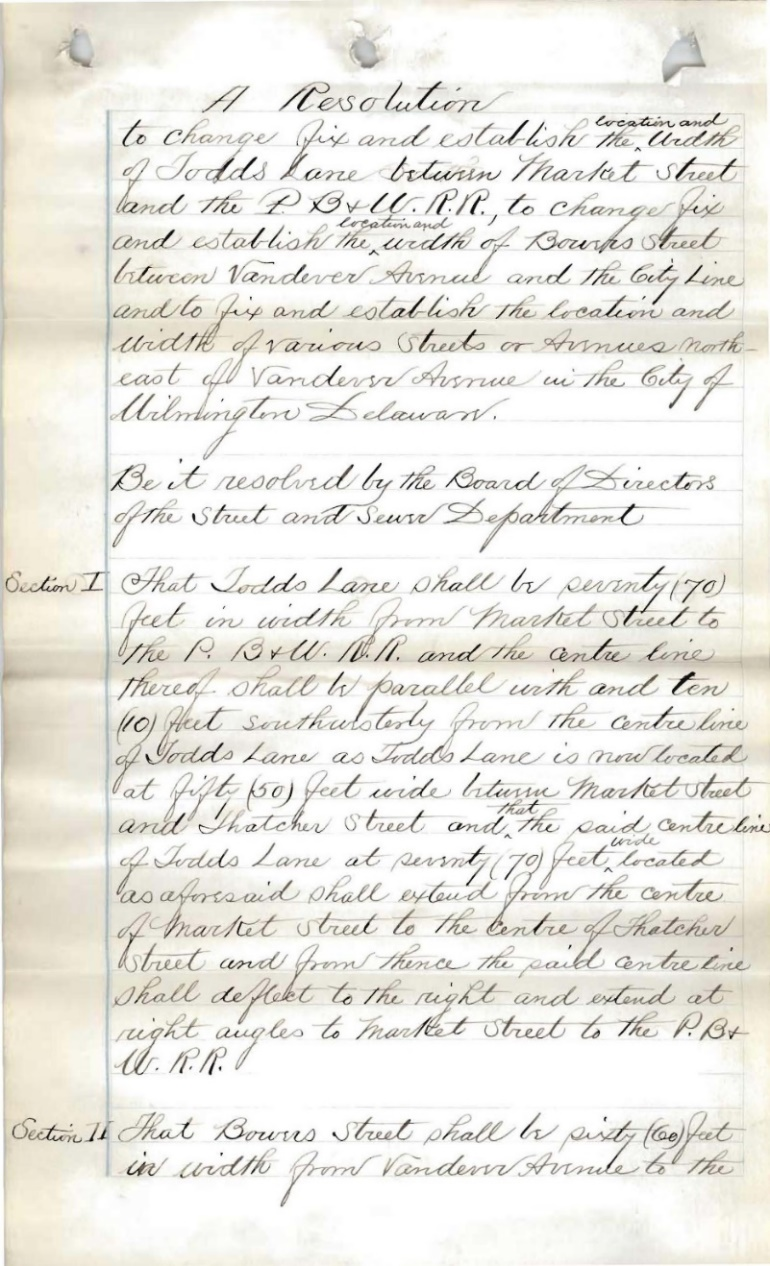 A Resolution
to change fix and establish the ^location and width
of Todds Lane between Market Street
and the P. B & W. R.R., to change fix
and establish the ^location and width of Bowers Street
between Vandever Avenue and the City Line
and to fix and establish the location and
width of various Streets or Avenues north-
east of Vandever Avenue in the City of
Wilmington Delaware.
Be it resolved by the Board of Directors
of the Street and Sewer Department
Section I That Todds Lane shall be seventy (70)
feet in width from Market Street to
the P. B & W. R.R. and the centre line
thereof shall be parallel with and ten
(10) feet southwesterly from the centre line
of Todds Lane as Todds Lane is now located
at fifty (50) feet wide between Market Street
and Thatcher Street and ^that the said centre line
of Todds Lane at seventy (70) feet ^wide located
as aforesaid shall extend from the centre
of Market Street to the centre of Thatcher
Street and from thence the said centre line
shall deflect to the right and extend at
right angles to Market Street to the P. B &
W. R.R.
Section II That Bowers Street shall be sixty (60) feet
in width from Vandever Avenue to the